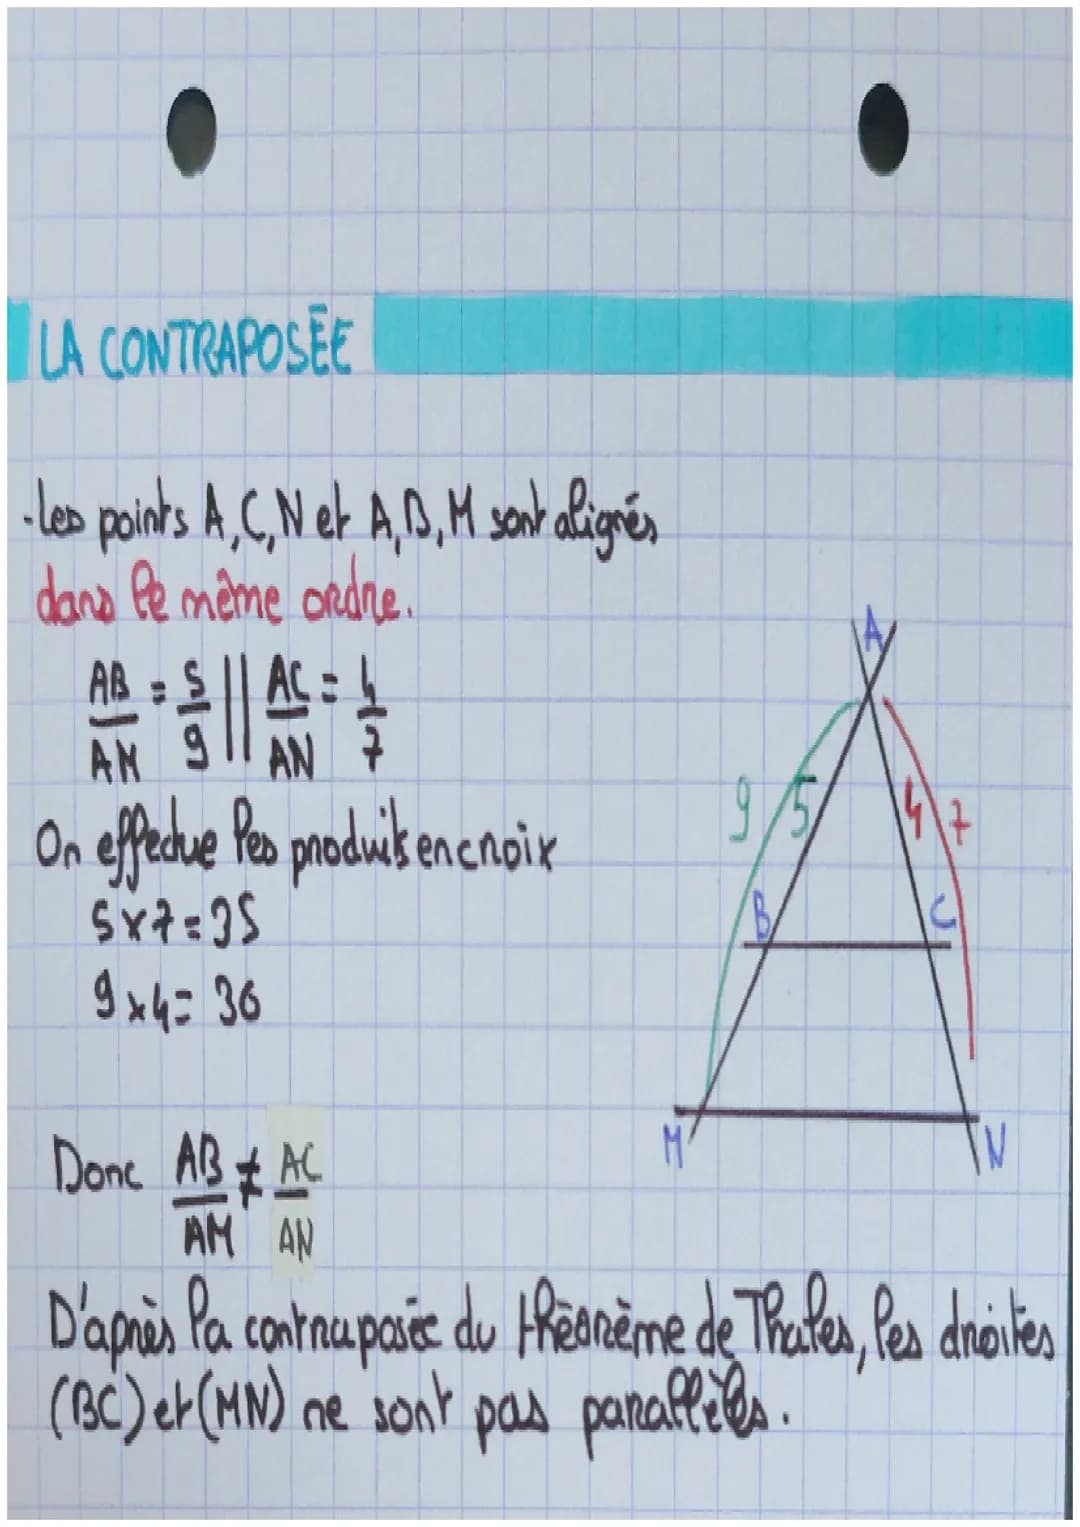 LA CONTRAPOSÉE
-les points A, C, N et A, B, M sont alignés
dans le même ordre.
AB/AM = 5/9 || AC/AN = 4/7
On effectue les produits en croix
5 x 7 = 35
9 x 4 = 36
Donc AB/AM ≠ AC/AN
D'après la contraposée du théorème de Thales, les droites
(BC) et (MN) ne sont pas parallèles.
A
9 5 4 7
B C
M N